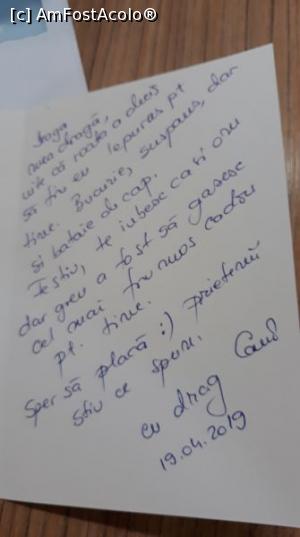 [c] AmFostAcolo®
draga
mea dragă,
uite că roata a decis
să fiu eu iepuraș pt
tine. Bucurie, suspans, dar
și bătaie de cap.
Festiv, te iubesc ca și om
dar greu a fost să găsesc
cel mai frumos cadou
pt. tine.
Sper să placă :) prietenii
știu ce spun.
cu drag
19.04.2019